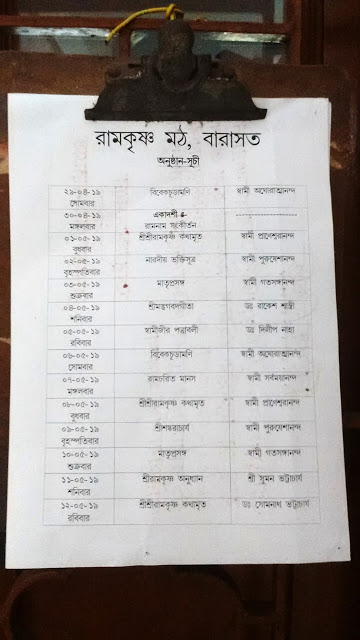 রামকৃষ্ণ মঠ, বারাসত
অনুষ্ঠান-সূচী
২৯-০৪-১৯ সোমবার বিবেকচূড়ামণি স্বামী অঘোরাত্মানন্দ
৩০-০৪-১৯ মঙ্গলবার একাদশী ৪ রামনাম সংকীর্তন --------------------
০১-০৫-১৯ বুধবার শ্রীশ্রীরামকৃষ্ণ কথামৃত স্বামী প্রাণেশ্বরানন্দ
০২-০৫-১৯ বৃহস্পতিবার নারদীয় ভক্তিসূত্র স্বামী পুরুষেশানন্দ
০৩-০৫-১৯ শুক্রবার মাতৃপ্রসঙ্গ স্বামী গতসঙ্গানন্দ
০৪-০৫-১৯ শনিবার শ্রীমদ্ভগবদগীতা ডঃ রাকেশ শাস্ত্রী
০৫-০৫-১৯ রবিবার স্বামীজীর পত্রাবলী ডঃ দিলীপ নাহা
০৬-০৫-১৯ সোমবার বিবেকচূড়ামণি স্বামী অঘোরাত্মানন্দ
০৭-০৫-১৯ মঙ্গলবার রামচরিত মানস স্বামী সর্বময়ানন্দ
০৮-০৫-১৯ বুধবার শ্রীশ্রীরামকৃষ্ণ কথামৃত স্বামী প্রাণেশ্বরানন্দ
০৯-০৫-১৯ বৃহস্পতিবার শ্রীশঙ্করাচার্য স্বামী পুরুষেশানন্দ
১০-০৫-১৯ শুক্রবার মাতৃপ্রসঙ্গ স্বামী গতসঙ্গানন্দ
১১-০৫-১৯ শনিবার শ্রীরামকৃষ্ণ অনুধ্যান শ্রী সুমন ভট্টাচার্য
১২-০৫-১৯ রবিবার শ্রীশ্রীরামকৃষ্ণ কথামৃত ডঃ সোমনাথ ভট্টাচার্য